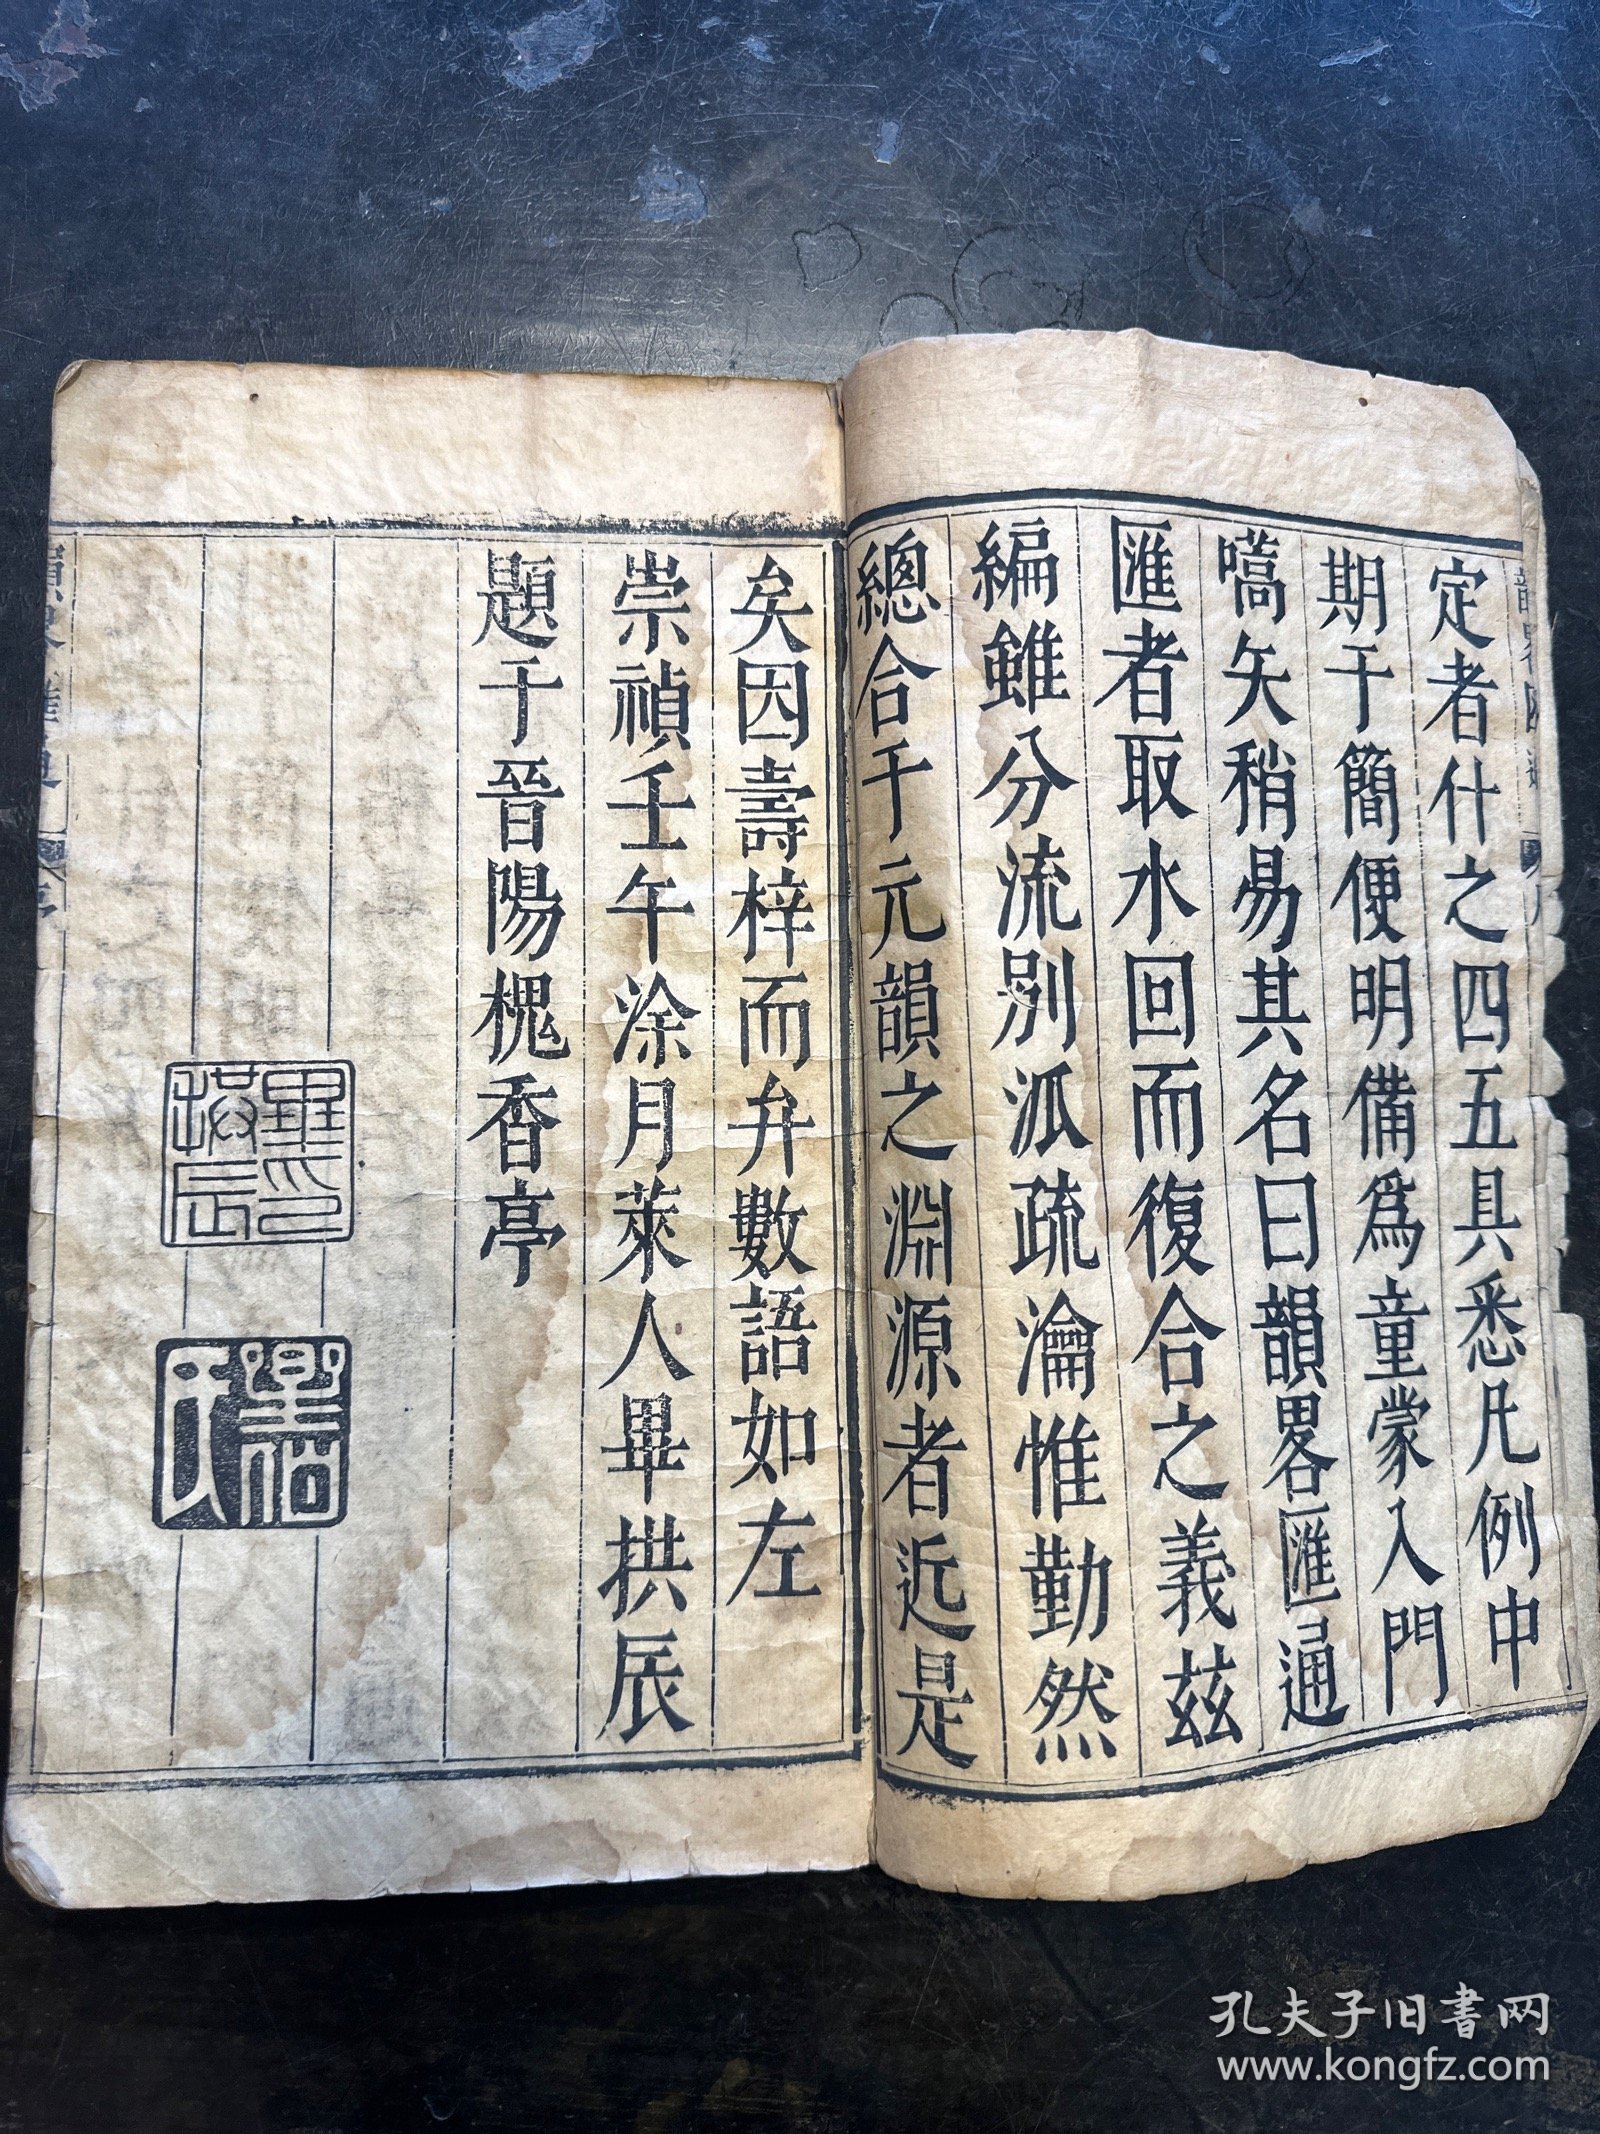 定者什之四五具悉凡例中
期于簡便明備爲童蒙入門
嚆矢稍易其名曰韻畧匯通
匯者取水回而復合之義茲
編雖分流別泒疏瀹惟勤然
總合于元韻之淵源者近是
矣因壽梓而弁數語如左
崇禎壬午涂月萊人畢拱辰
題于晉陽槐香亭
畢印拱辰
孔夫子旧书网
www.kongfz.com